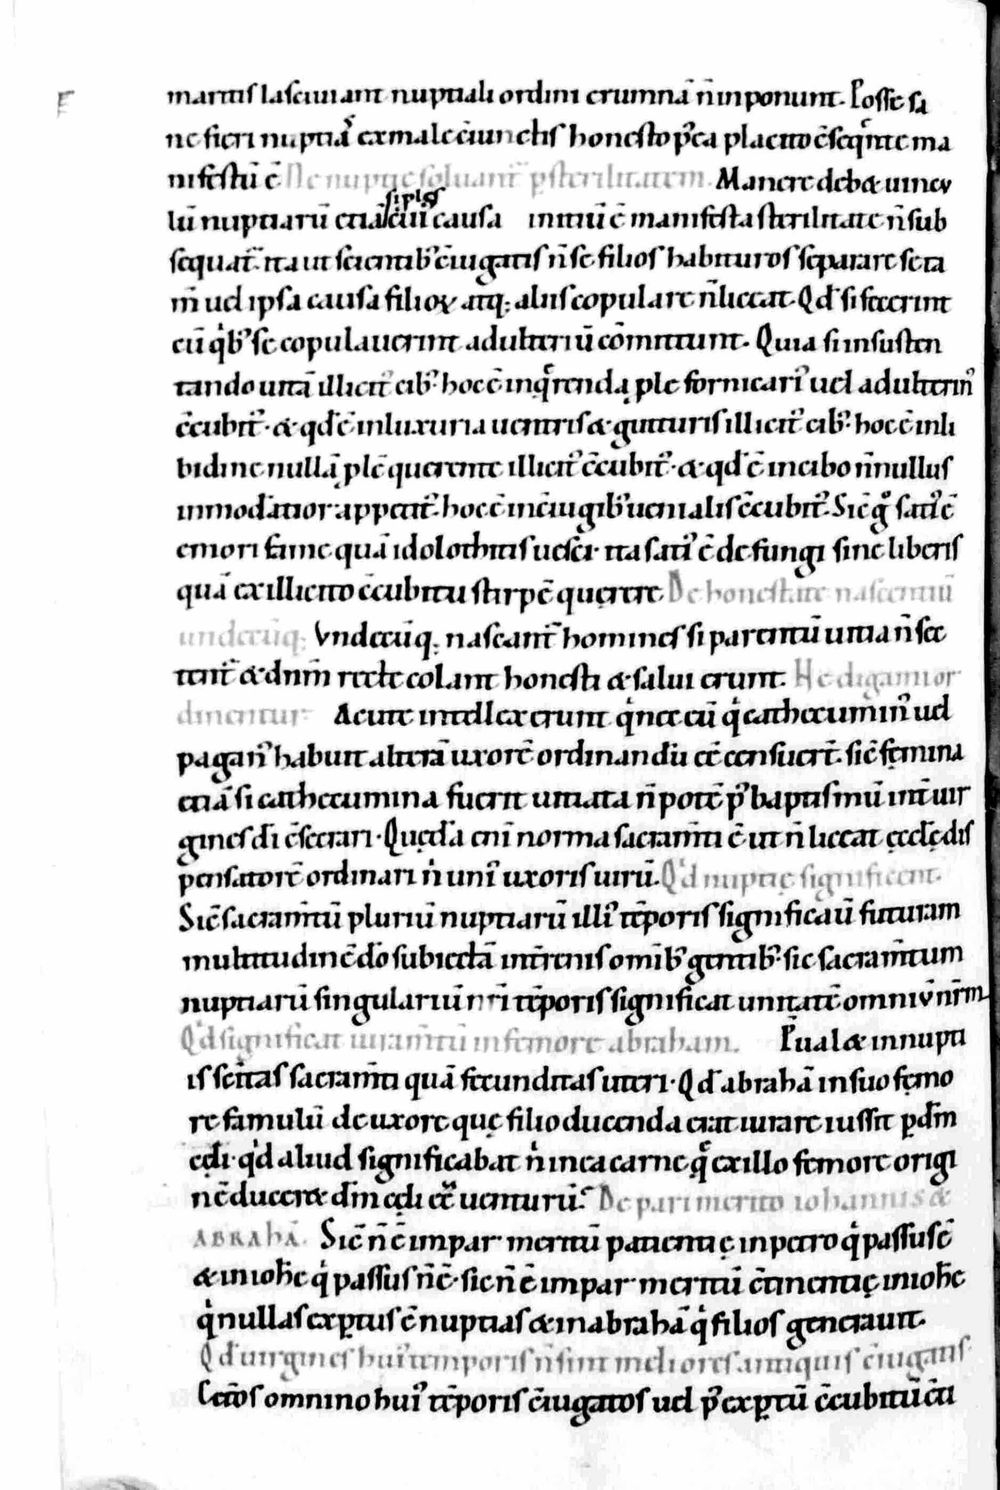 maritis lasciuiant nuptiali ordini crimnā n̄ inponunt. Posse sa
ne fieri nuptiā ex male c̄iunctis honesto p̓ea placito c̄seq̄nte ma
nifestū ē. Ne nuptie soluant͛ ꝑ sterilitatem. Manere debet uincu
lū nuptiarū etiā si ꝓlis cuiꝰ causa initū ē manifesta sterilitate n̄ sub
sequat͛. ita ut scientibꝰ c̄iugatis n̄ se filios habituros separare se ta
m̄ uel ipsa causa filioꝝ atq; aliis copulare n̄ liceat. Qđ si fecerint
cū q̓bꝰ se copulauerint adulteriū cōmittunt. Quia si in susten
tando uitā illicitꝰ cibꝰ hoc ē in q̄renda ꝓle fornicariꝰ uel adulterinꝰ
c̄cubitꝰ. et qđ ē in luxuria uentris et gutturis illicitꝰ cibꝰ. hoc ē in li
bidine nullā ꝓlē querente illicitꝰ c̄cubitꝰ. et qđ ē in cibo n̄nullus
inmoderatior appetitꝰ. hoc ē in c̄iugibꝰ uenialis c̄cubitꝰ. Sic̄ gͦ satiꝰ ē
emori fame quā idolothitis uesci. ita satiꝰ ē defungi sine liberis
quā ex illicito c̄cubitu stirpē quęrere. De honestate nascentiū
undecūq;. Vndecūq; nascant͛ homines si parentū uitia n̄ sec
tent͛ et dn̄m recte colant honesti et salui erunt. Ne digami or
dinentur. Acute intellexerunt q̓ nec eū q̓ cathecuminꝰ uel
paganꝰ habuit alterā uxorē ordinandū eē censuer̄t. sic̄ femina
etiā si cathecumina fuerit uitiata n̄ potē p̓ baptismū int̄ uir
gines dī c̄secrari. Quędā eni norma sacram̄ti ē ut n̄ liceat ęcclę dis
pensatorē ordinari n̓ uniꝰ uxoris uirū. Q̓d nuptię significent.
Sic̄ sacram̄tū pluriū nuptiarū illiꝰ tēporis significauit futuram
multitudinē dō subiectā in t̄renis om̄ibꝰ gentibꝰ. sic sacram̄tum
nuptiarū singulariū nr̄i tēporis significat unitatē omniū nr̄m
Q̓d significat iuram̄tū in femore abraham. Pualet in nupti
is sc̄itas sacram̄ti quā fecunditas uteri. Qđ abrahā in suo femo
re famulū de uxore que filio ducenda erat iurare iussit ꝑ dm̄
cęli. q̓d aliud significabat n̓ in ea carne q̄ ex illo femore origi
nē duceret dm̄ cęli eē uenturū. De pari merito iohannis et
ABRAHĀ. Sic̄ n̄ ē impar meritū patientię in petro q̓ passus ē
et in ioh̄e q̓ passus n̄ ē. sic n̄ ē impar meritū c̄tinentię in ioh̄e
q̓ nullas exꝑtus ē nuptias et in abrahā q̓ filios generauit.
Qđ uirgines huiꝰ temporis n̄ sint meliores antiquis c̄iugatis.
Cetos omnino huiꝰ tēporis c̄iugatos uel p̓ exꝑtū c̄cubitū c̄ti